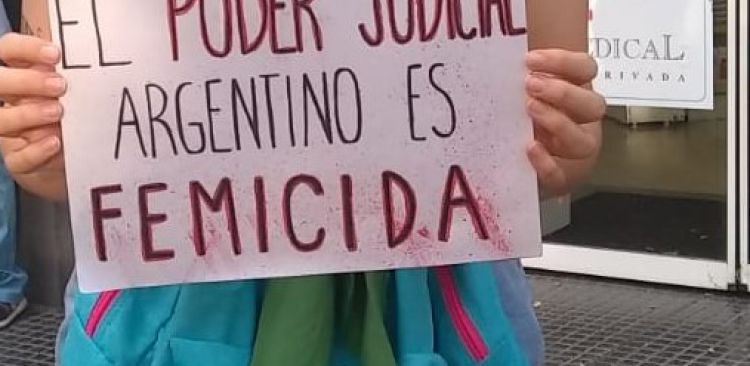 EL PODER JUDICIAL
ARGENTINO ES
FEMICIDA
RIVADA